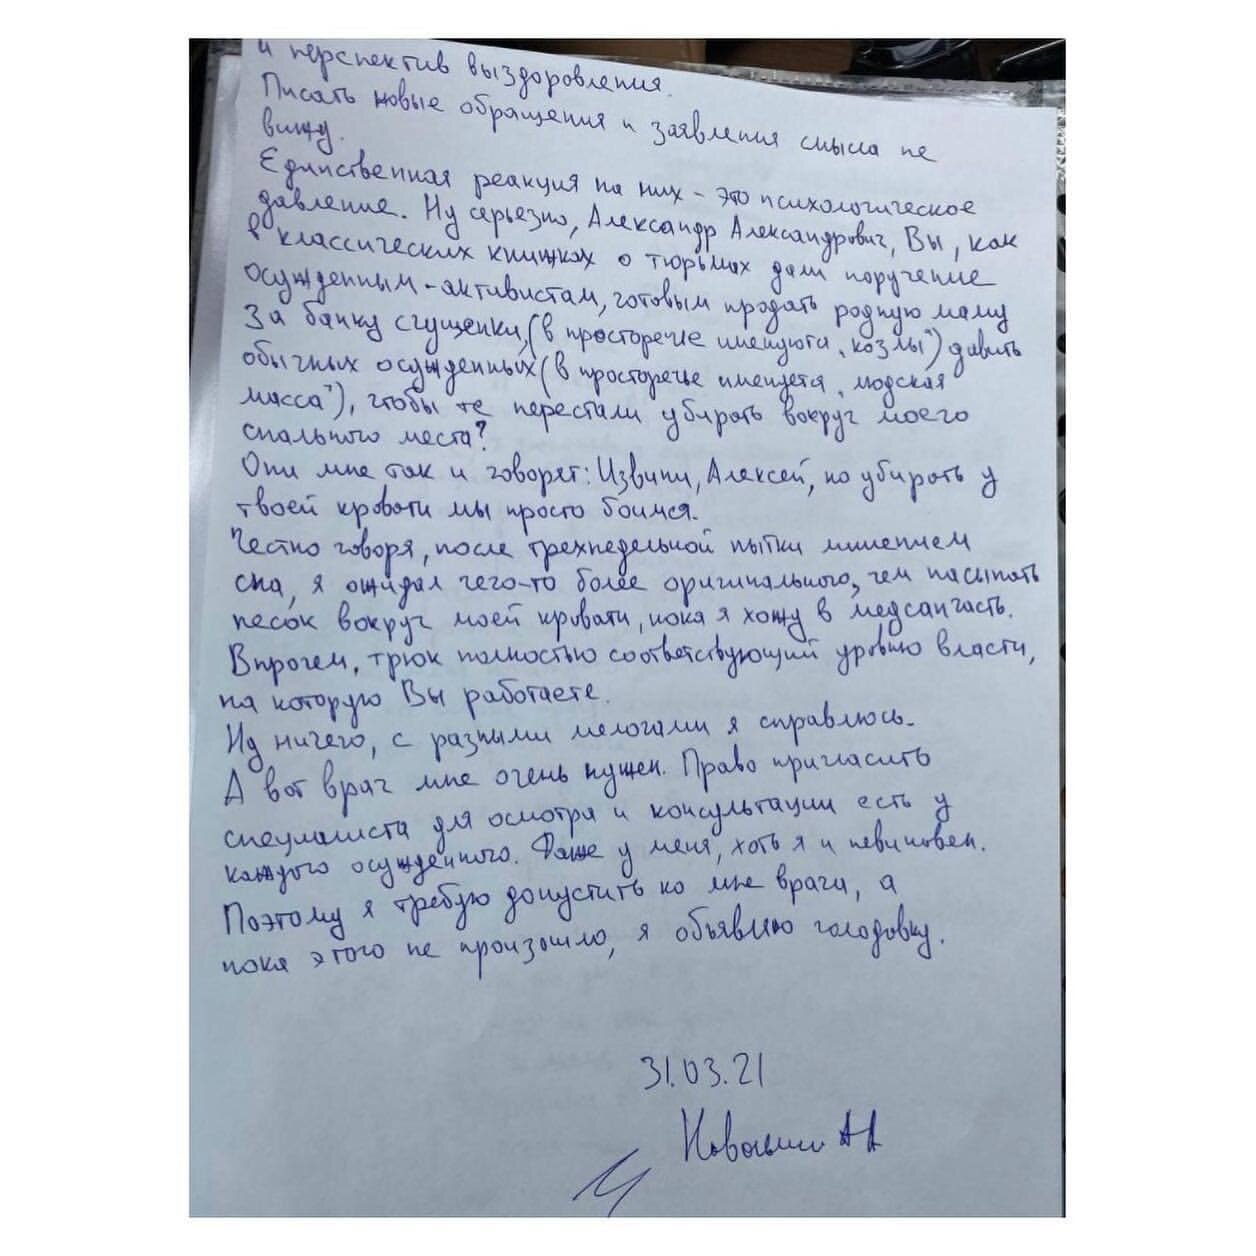 и перспектив выздоровления.
Писать новые обращения и заявления смысла не
вижу.
Единственная реакция на них - это психологическое
давление. Ну серьезно, Александр Александрович, Вы, как
в классических книжках о тюрьмах дали поручение
осужденным-активистам, готовым продать родную маму
за банку сгущенки, (в просторечье именуются „козлы") давить
обычных осужденных (в просторечье именуется „людская
масса"), чтобы те перестали убирать вокруг моего
спального места?
Они мне так и говорят: Извини, Алексей, но убирать у
твоей кровати мы просто боимся.
Честно говоря, после трехнедельной пытки лишением
сна, я ожидал чего-то более оригинального, чем насыпать
песок вокруг моей кровати, пока я хожу в медсанчасть.
Впрочем, трюк полностью соответствующий уровню власти,
на которую Вы работаете.
Ну ничего, с разными мелочами я справлюсь.
А вот врач мне очень нужен. Право пригласить
специалиста для осмотра и консультации есть у
каждого осужденного. Даже у меня, хоть я и невиновен.
Поэтому я требую допустить ко мне врача, а
пока этого не произошло, я объявляю голодовку.
31.03.21
Навальный АА